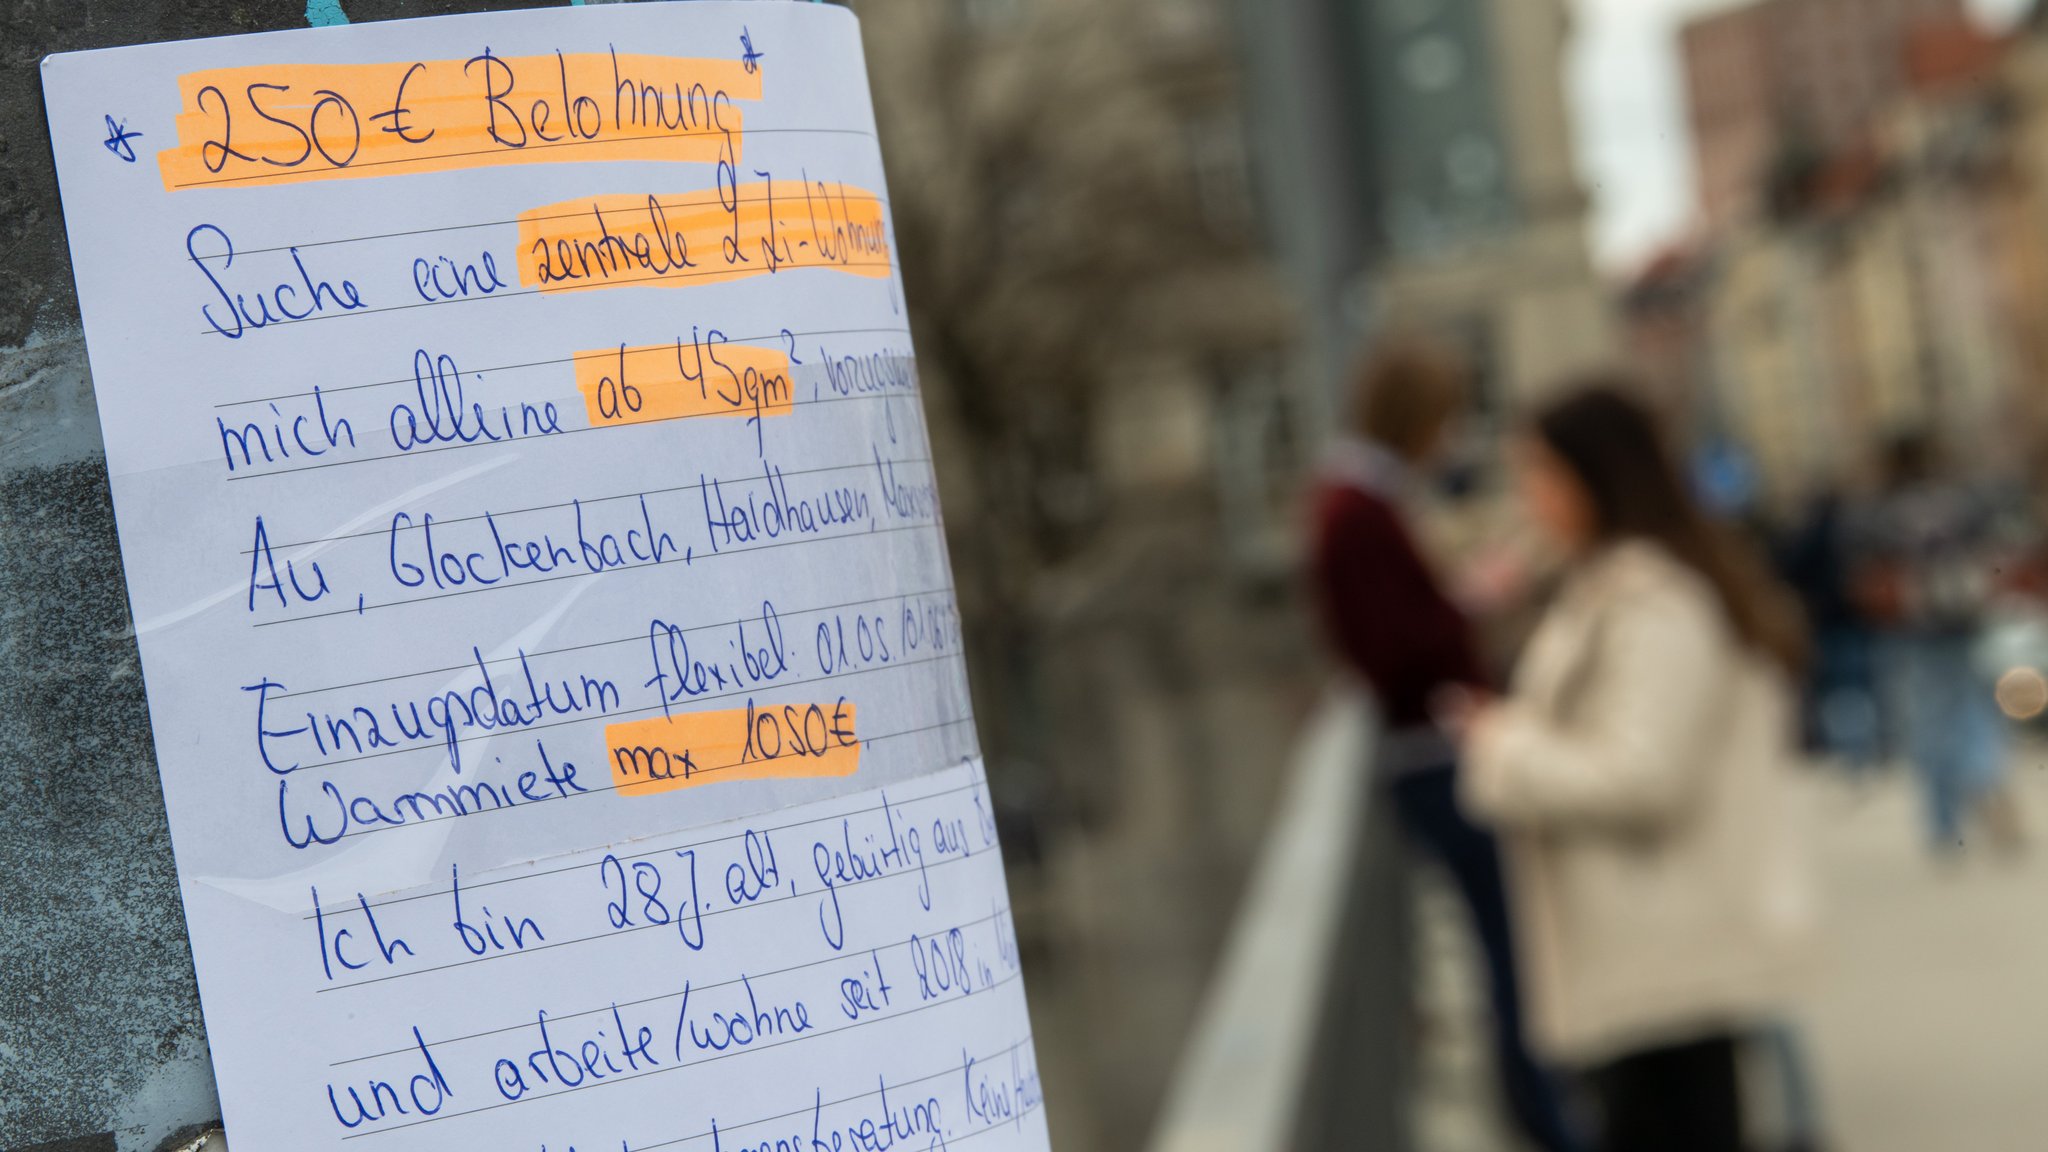 * 250€ Belohnung *
Suche eine zentrale 2 Zi-Wohnung
mich alleine ab 45qm²,
Au, Glockenbach, Haidhausen,
Einzugsdatum flexibel: 01.05./01.06
Warmmiete max 1050€.
Ich bin 28 J. alt, gebürtig aus
und arbeite/wohne seit 2018 in